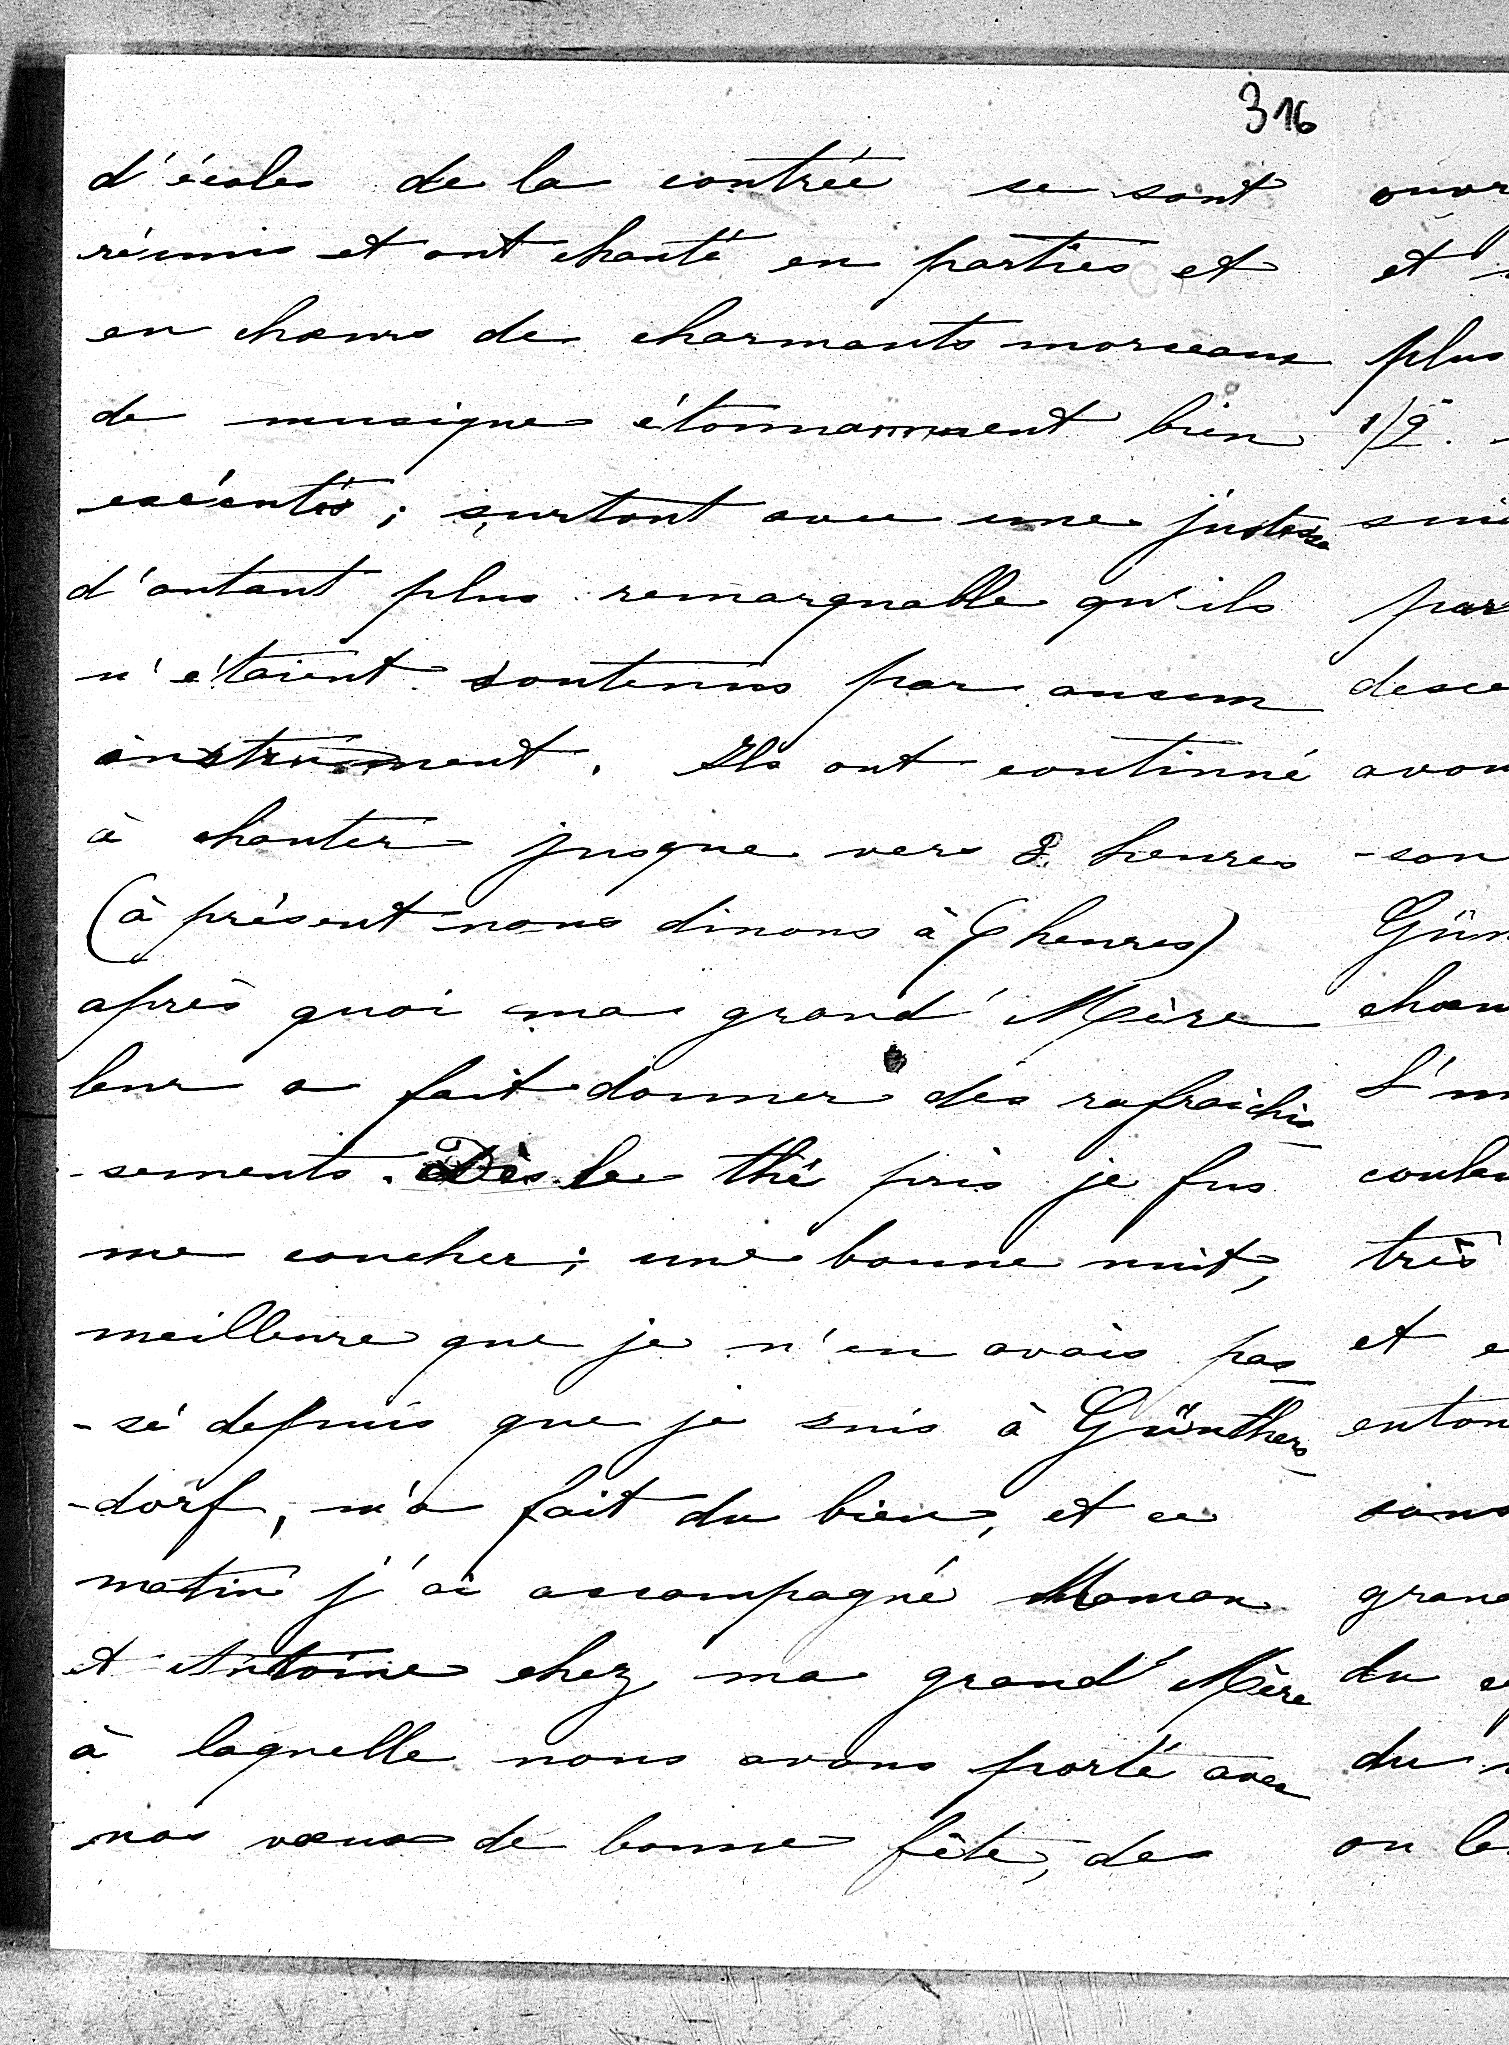 316
d'écoles de la contrée se sont
réunis et ont chanté en parties et
en chœurs de charmants morceaux
de musique étonnamment bien
exécutés; surtout avec une justesse
d'autant plus remarquable qu'ils
n'étaient soutenus par aucun
instrument. Ils ont continué
à chanter jusque vers 8 heures
(à présent nous dinons à 6 heures)
après quoi ma grand' Mère
leur a fait donner des rafraichis
-sements. Dès le thé pris je fus
me coucher; une bonne nuit,
meilleure que je n'en avais pas
-sé depuis que je suis à Günthers
-dorf, m'a fait du bien, et ce
matin j'ai accompagné Maman
et Antoine chez ma grand' Mère
à laquelle nous avons porté avec
nos vœux de bonne fête, des
ouvr
et
plus
1/2.
sui
par
desce
avon
-son
Gün
chœu
L'm
coule
très
et e
enton
sons
grand
du
du
on le